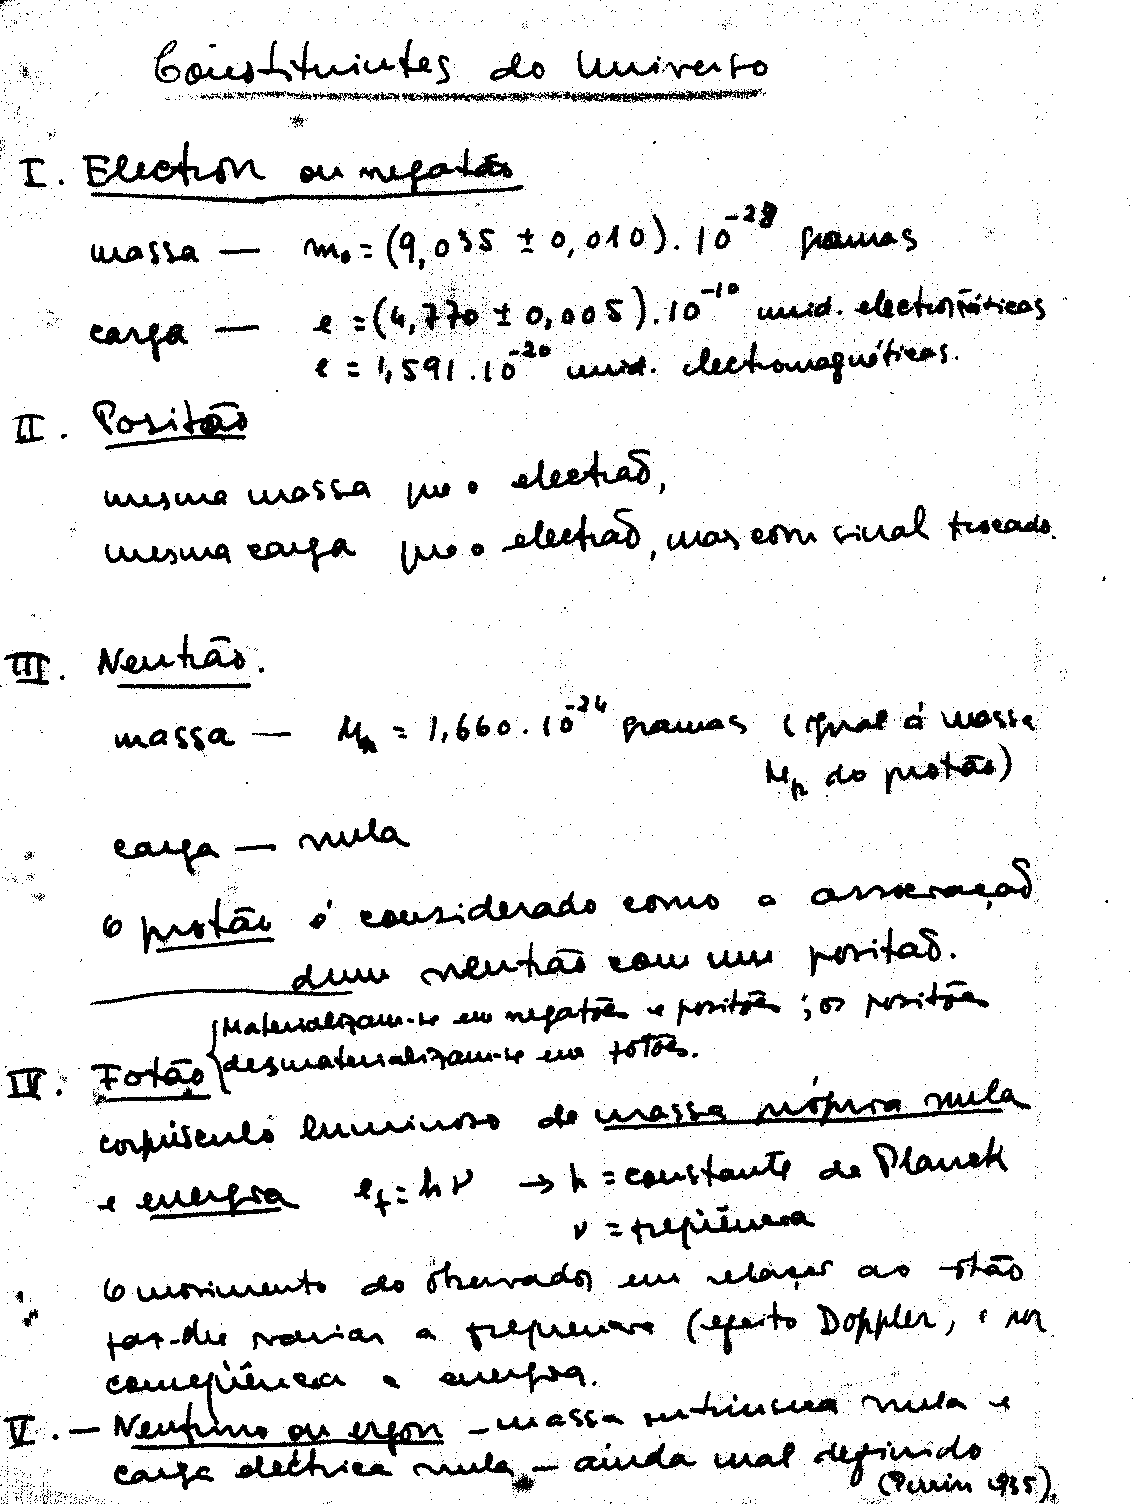 Constituintes do Universo
I. Electron ou negatão
massa — m₀ = (9,035 ± 0,010). 10⁻²⁸ gramas
carga — e = (4,770 ± 0,005). 10⁻¹⁰ unid. electrostáticas
e = 1,591. 10⁻²⁰ unid. electromagnéticas.
II. Positão
mesma massa que o electrão,
mesma carga que o electrão, mas com sinal trocado.
III. Neutrão.
massa — Mₙ = 1,660. 10⁻²⁴ gramas (igual á massa
Mₚ do protão)
carga — nula
O protão é considerado como a associação
dum neutrão com um positão.
Materializam-se em negatões e positões; os positões
desmaterializam-se em fotões.
IV. Fotão
corpúsculo luminoso de massa própria nula
e energia e_f = hν → h = constante de Planck
ν = freqüência
O movimento do observador em relação ao fotão
faz-lhe variar a frequencia (efeito Doppler, e por
conseqüência a energia.
V. — Neutrino ou ergon — massa intrinseca nula e
carga eléctrica nula — ainda mal definido
(Perrin 1935).